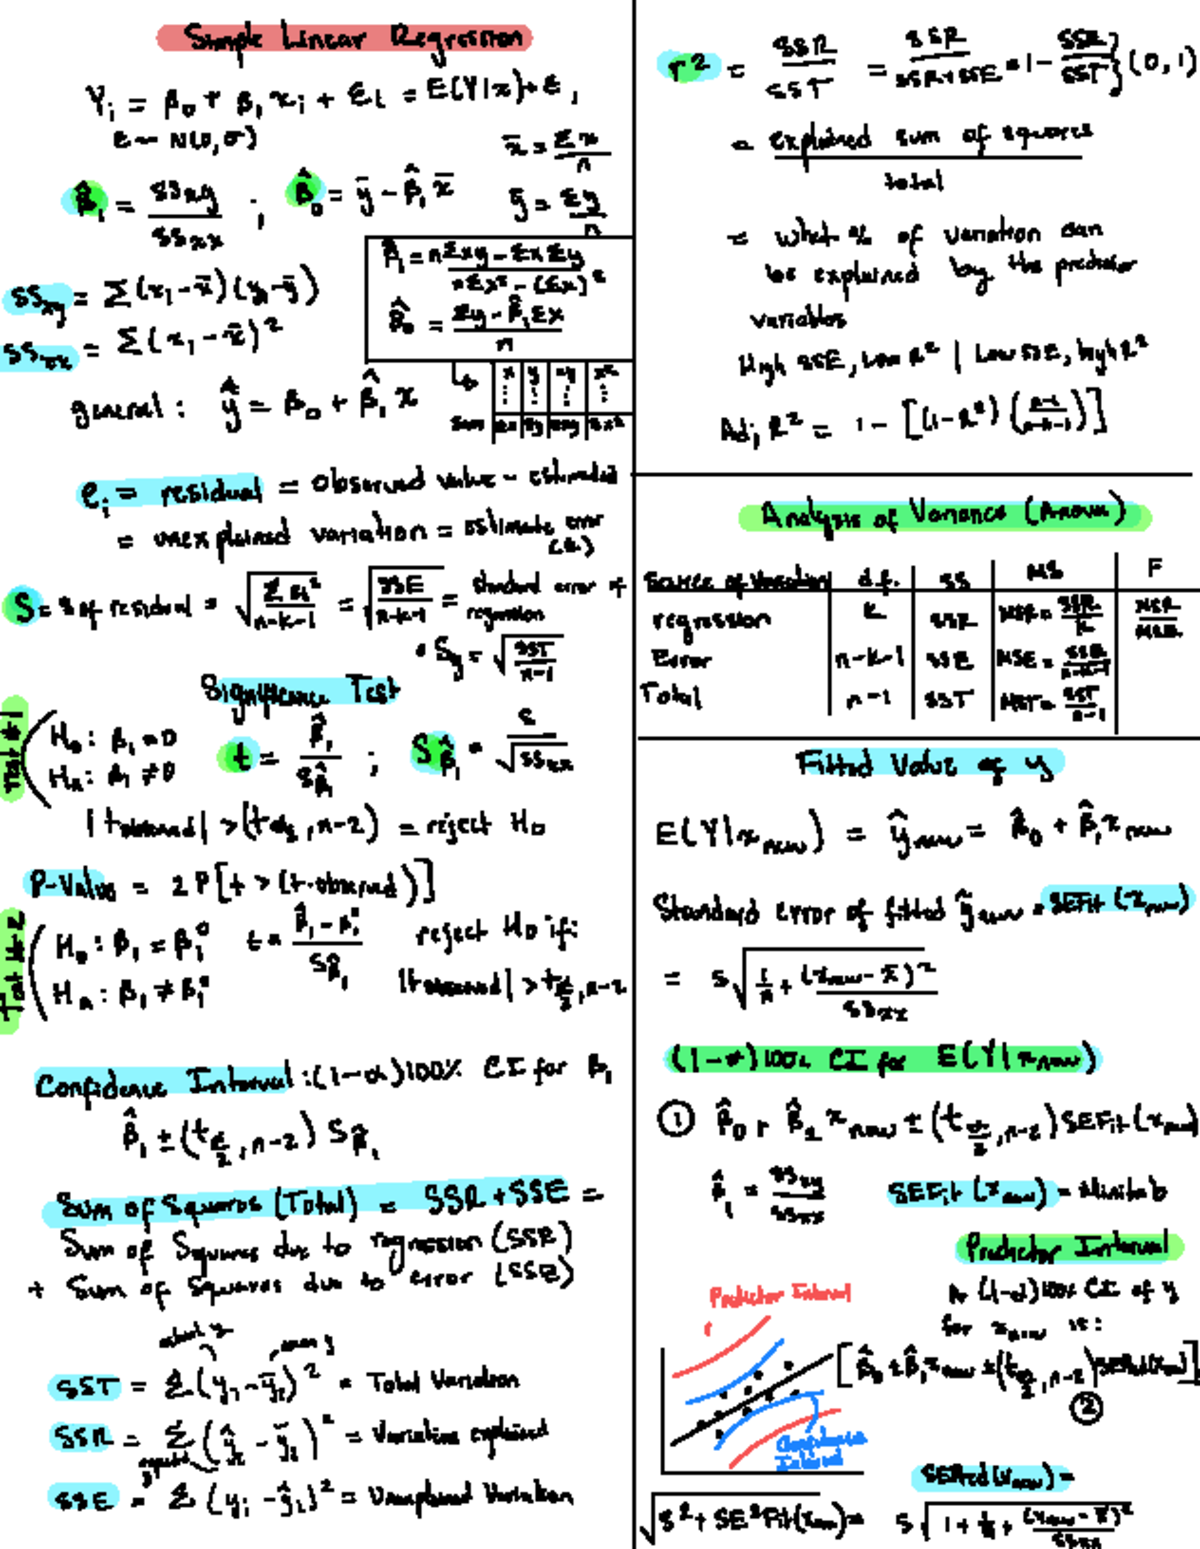 Simple Linear Regression
Yᵢ = β₀ + β₁xᵢ + εᵢ = E(Y|x)+ε,
ε ~ N(0,σ)
x̄ = Σx/n
β̂₁ = SSxy/SSxx ; β̂₀ = ȳ - β̂₁x̄
ȳ = Σy/n
β̂₁ = nΣxy - ΣxΣy / nΣx² - (Σx)²
β̂₀ = Σy - β̂₁Σx / n
SSxy = Σ(x₁-x̄)(y₁-ȳ)
SSxx = Σ(x₁-x̄)²
x y xy x²
Sum Σx Σy Σxy Σx²
general: ŷ = β₀ + β̂₁x
eᵢ = residual = observed value - estimated
= unexplained variation = estimate error
S = s of residual = √(Σeᵢ²/n-k-1) = √(SSE/n-k-1) = standard error of regression
• Sy = √(SST/n-1)
Significance Test
Test #1
H₀: β₁ = 0
Hₐ: β₁ ≠ 0
t = β̂₁/Sβ̂₁ ; Sβ̂₁ = S/√SSxx
|t observed| > (tα/2, n-2) = reject H₀
P-Value = 2P[t > (t-observed)]
Test #2
H₀: β₁ = β₁⁰
Hₐ: β₁ ≠ β₁⁰
t = β̂₁ - β₁⁰ / Sβ̂₁
reject H₀ if:
|t observed| > tα/2, n-2
Confidence Interval: (1-α)100% CI for β₁
β̂₁ ± (tα/2, n-2) Sβ̂₁
Sum of Squares (Total) = SSR + SSE =
Sum of Squares due to regression (SSR)
+ Sum of Squares due to error (SSE)
actual y
mean y
SST = Σ(yᵢ-ȳᵢ)² = Total Variation
SSR = Σ(ŷᵢ-ȳᵢ)² = Variation explained
SSE = Σ(yᵢ-ŷᵢ)² = Unexplained Variation
r² = SSR/SST = SSR/SSR+SSE = 1 - SSE/SST } (0,1)
= explained sum of squares / total
= what % of variation can
be explained by the predictor
variables
High SSE, Low R² | Low SSE, high R²
Adj R² = 1 - [(1-R²)(n-1/n-k-1)]
Analysis of Variance (Anova)
Source of Variation d.f. SS MS F
regression k SSR MSR = SSR/k MSR/MSE
Error n-k-1 SSE MSE = SSE/n-k-1
Total n-1 SST MST = SST/n-1
Fitted Value of y
E(Y|xnew) = ŷnew = β̂₀ + β̂₁xnew
Standard error of fitted ŷnew = SEFit(xnew)
= s√(1/n + (xnew-x̄)²/SSxx)
(1-α)100% CI for E(Y|xnew)
① β̂₀ + β̂₁xnew ± (tα/2, n-2) SEFit(xnew)
β̂₁ = SSxy/SSxx
SEFit(xnew) = Minitab
Predictor Interval
A (1-α)100% CI of y
for xnew is:
Predictor Interval
[β̂₀ + β̂₁xnew ± (tα/2, n-2) SEPred(xnew)]
②
Confidence
Interval
SEPred(xnew) =
√(s² + SE²Fit(xnew)) = s√(1 + 1/n + (xnew-x̄)²/SSxx)